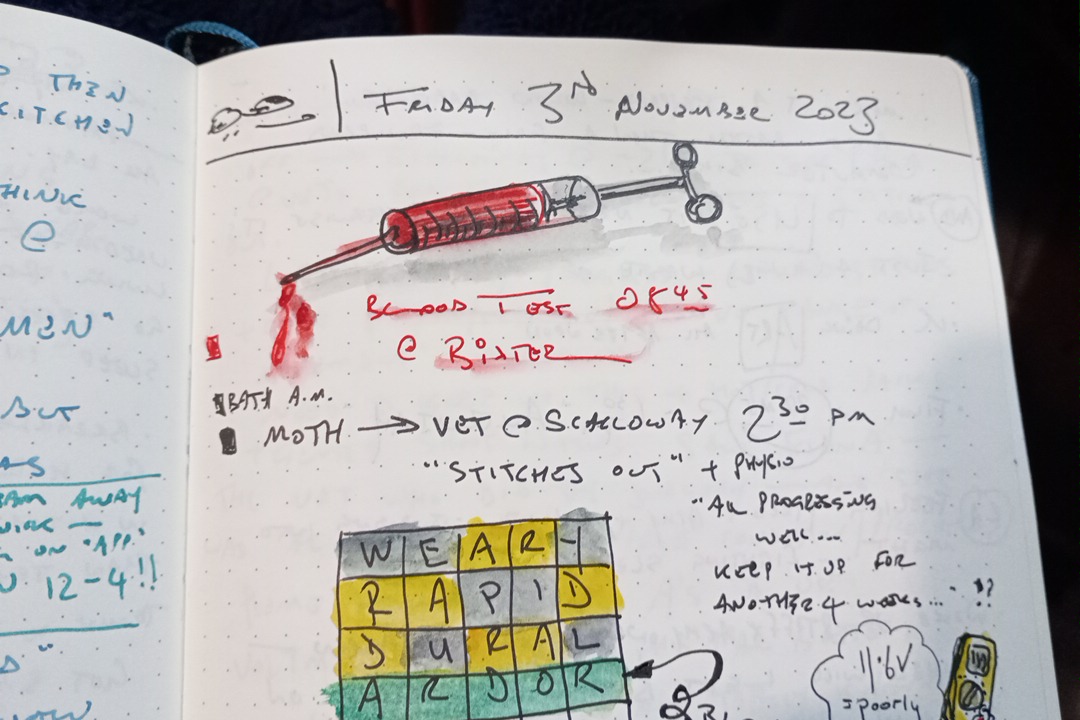 THEN
KITCHEN
THINK
@
MEN"
BUT
AWAY
ON "APP"
12-4!!
FRIDAY 3RD NOVEMBER 2023
BLOOD TEST 0845
@ BIXTER
BATH A.M.
MOTH → VET @ SCALLOWAY 2 30 PM
"STITCHES OUT" + PHYSIO
"ALL PROGRESSING
WELL...
KEEP IT UP FOR
ANOTHER 4 WEEKS..." !?
WEARY
RAPID
DURAL
ARDOR
11.6V
=poorly